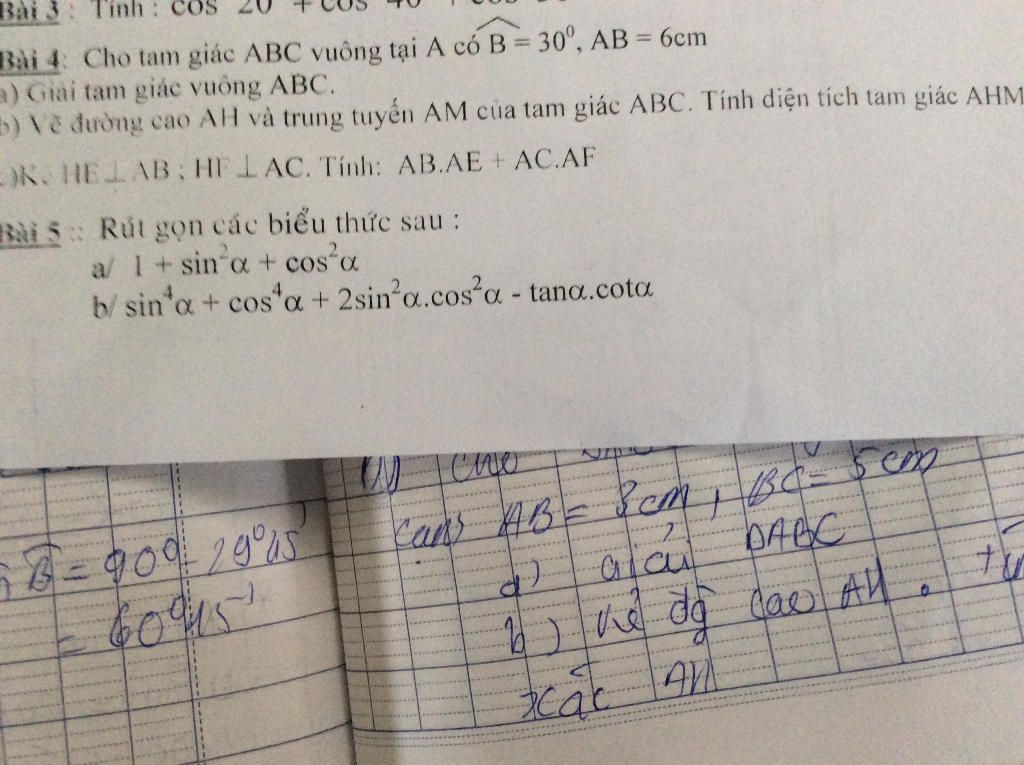 Bài 3 : Tính : cos 20 + cos 40 + cos
Bài 4: Cho tam giác ABC vuông tại A có B̂ = 30⁰, AB = 6cm
a) Giải tam giác vuông ABC.
b) Vẽ đường cao AH và trung tuyến AM của tam giác ABC. Tính diện tích tam giác AHM
HE⊥AB ; HF⊥AC. Tính: AB.AE + AC.AF
Bài 5 :: Rút gọn các biểu thức sau :
a/ 1 + sin²α + cos²α
b/ sin⁴α + cos⁴α + 2sin²α.cos²α - tanα.cotα
cho
AB = 3cm, BC = 5cm
B̂ = 90⁰ - 29⁰45'
= 60⁰15'
a) giải ΔABC
b) kẻ đg cao AH.
AH